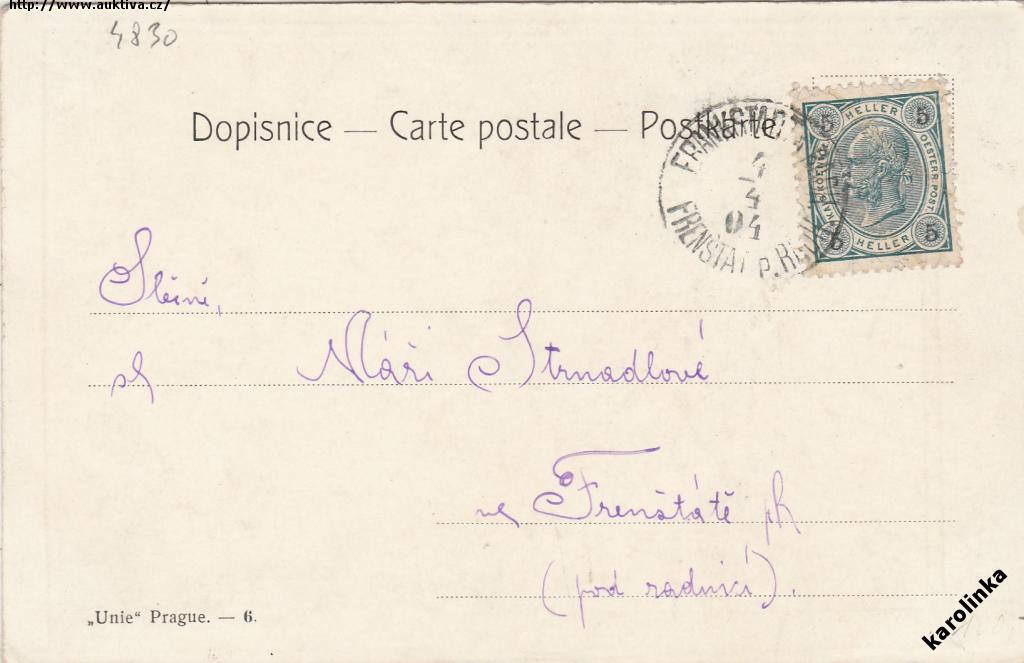 http://www.auktiva.cz/
4830
Dopisnice — Carte postale — Postkarte
FRANKSTADT
4
4
04
FRENŠTÁT p. R
5 HELLER 5
OESTERR. POST.
5 HELLER 5
Slečně,
Máři Strnadlové
ve Frenštátě pR
(pod radnicí).
„Unie“ Prague. — 6.
karolinka